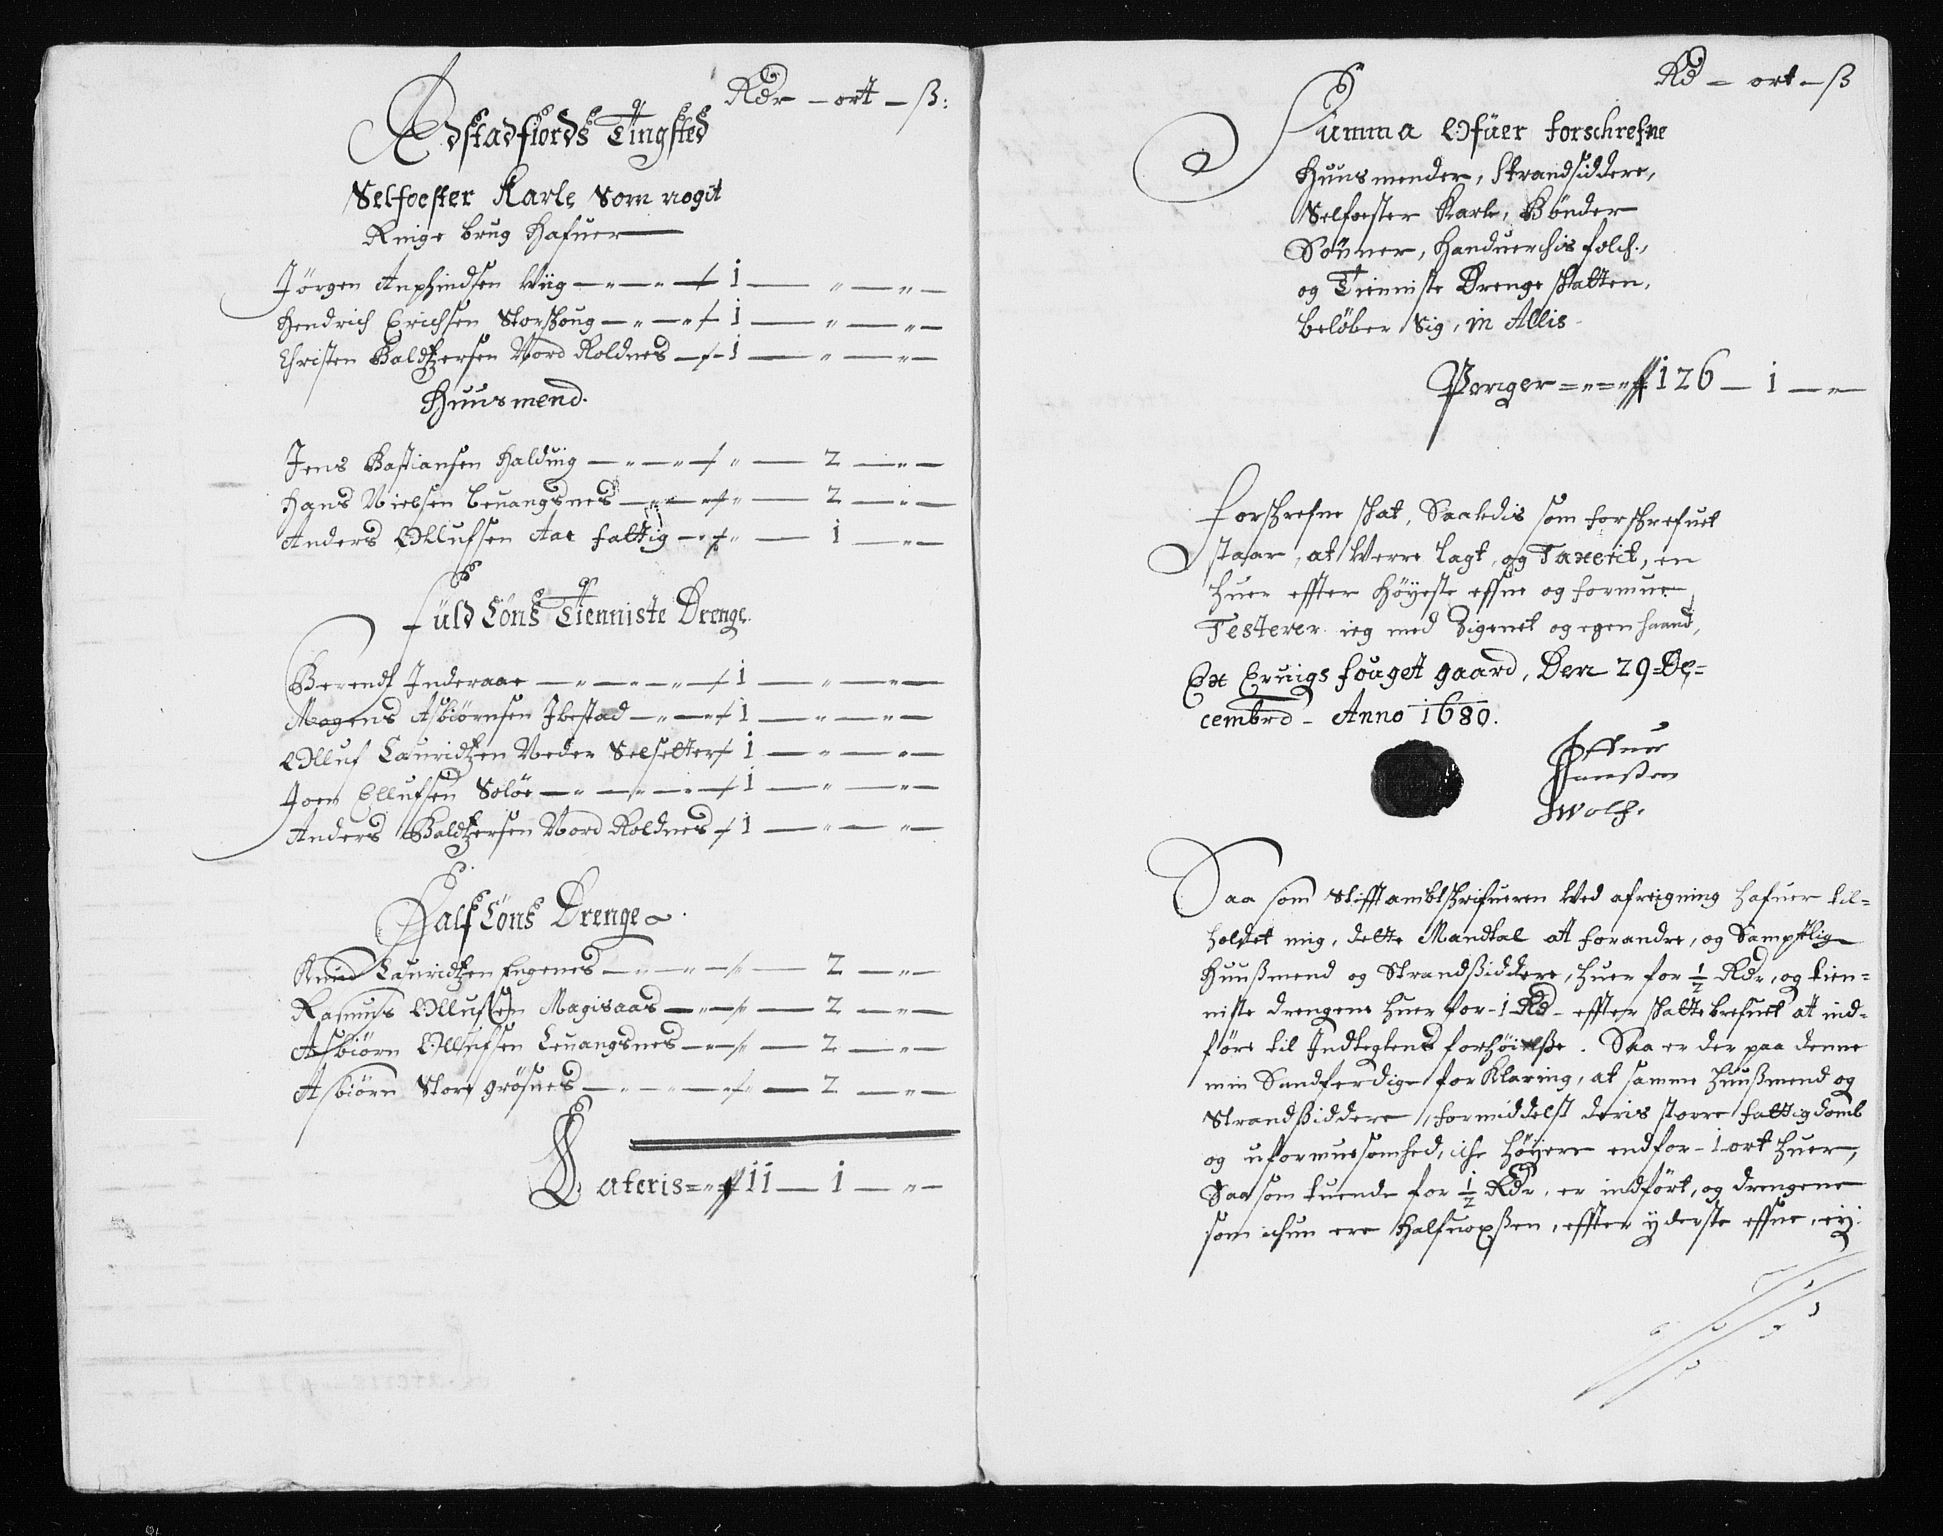 Rdr – ort – ß:
Adstadfiords Tingsted
Selfoester Karle Som nogit
Ringe brug Hafuer
Jörgen Anphindsen Wiig 1 – " – "
Hendrich Erichsen Storhoug 1 – " – "
Christen Baldtzersen Nord Roldnes 1 – " – "
Huusmend.
Jens Bastiansen Halduig " – 2 – "
Hans Nielsen Leuangsnes " – 2 – "
Anders Ollufsen Aae fattig " – 1 – "
Füld Löns Tienniste Drenge
Berendt Inderaae 1 – " – "
Mogens Asbiörnsen Ibestad 1 – " – "
Olluf Lauridtzen Neder Selsetter 1 – " – "
Joen Ellufsen Solöe 1 – " – "
Anders Baldtzersen Nord Roldnes 1 – " – "
Half Löns Drenge
Knud Lauridtzen Engenes – 2 – "
Rasmus Ollufsen Magisaas – 2 – "
Asbiörn Ollufsen Leuangsnes – 2 – "
Asbiörn Store grösnes – 2 – "
Lateris 11 – 1 – "
Rd – ort – ß
Summa Ofüer forschrefne
Huusmender, Strandsiddere,
Selfoester Karle, Bönder
Sönner, Handuerchis folch,
og Tienniste Drenge skatten,
belöber Sig, in Allis
Penger 126 – 1 – "
Forschrefne skat, Saaledis som forschrefuet
staar, at Verre lagt, og Taxerit, en
huer effter Höyeste effne og formue,
Testerer ieg med Zignet og egen haand,
Ex Eruigs fouget gaard, Den 29 De-
cembrd – Anno 1680.
Iffuer
Jenssen
Wolf.
Saa som Stifftambtskrifueren Ved afreigning hafuer til=
holdet mig, dette Mandtal at forandre, og Samptlig
Huußmend og Strandßiddere, huer for ½ Rdr, og tien=
niste drengene huer for 1 Rd – effter skattebrefuet at ind=
före til Indtegtens forhöielße. Saa er der paa denne
min Sandferdige forKlaring, at samme Huußmend og
Strandßiddere, formiddelst deris storre fattigdomb
og uformuesomhed, iche höyere end for 1 ort huer,
Saa som tuende for ½ Rdr, er indfört, og drengene
som ichun ere halfuoxßen, effter yderste effne, ey